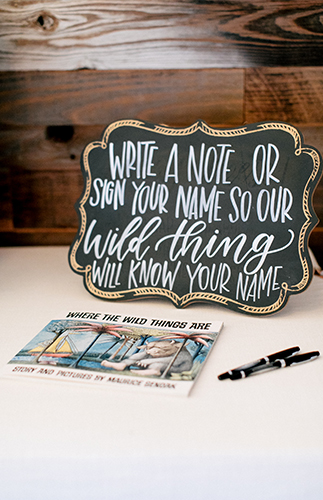 WRITE A NOTE OR
SIGN YOUR NAME SO OUR
wild thing
WILL KNOW YOUR NAME
WHERE THE WILD THINGS ARE
STORY AND PICTURES BY MAURICE SENDAK